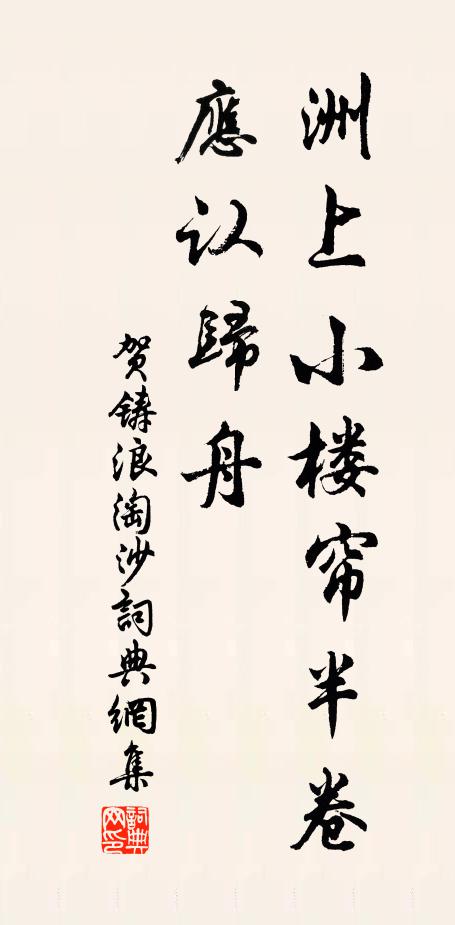 洲上小楼帘半卷
應认歸舟
贺鑄浪淘沙詞典網集
詞典网印